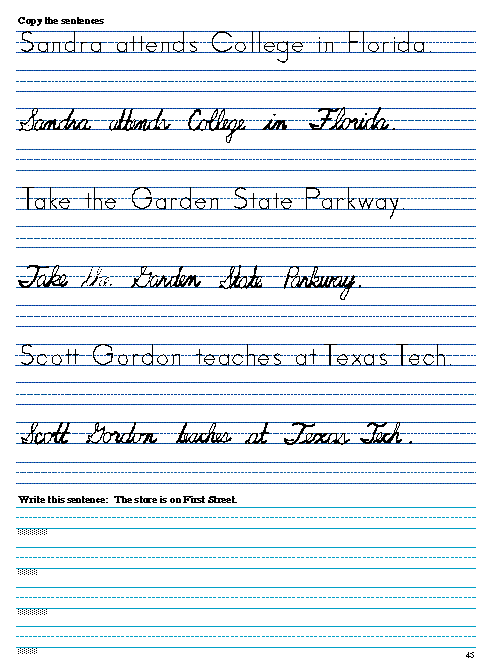 Copy the sentences
Sandra attends College in Florida.
Sandra attends College in Florida.
Take the Garden State Parkway
Take the Garden State Parkway.
Scott Gordon teaches at Texas Tech.
Scott Gordon teaches at Texas Tech.
Write this sentence: The store is on First Street.
45